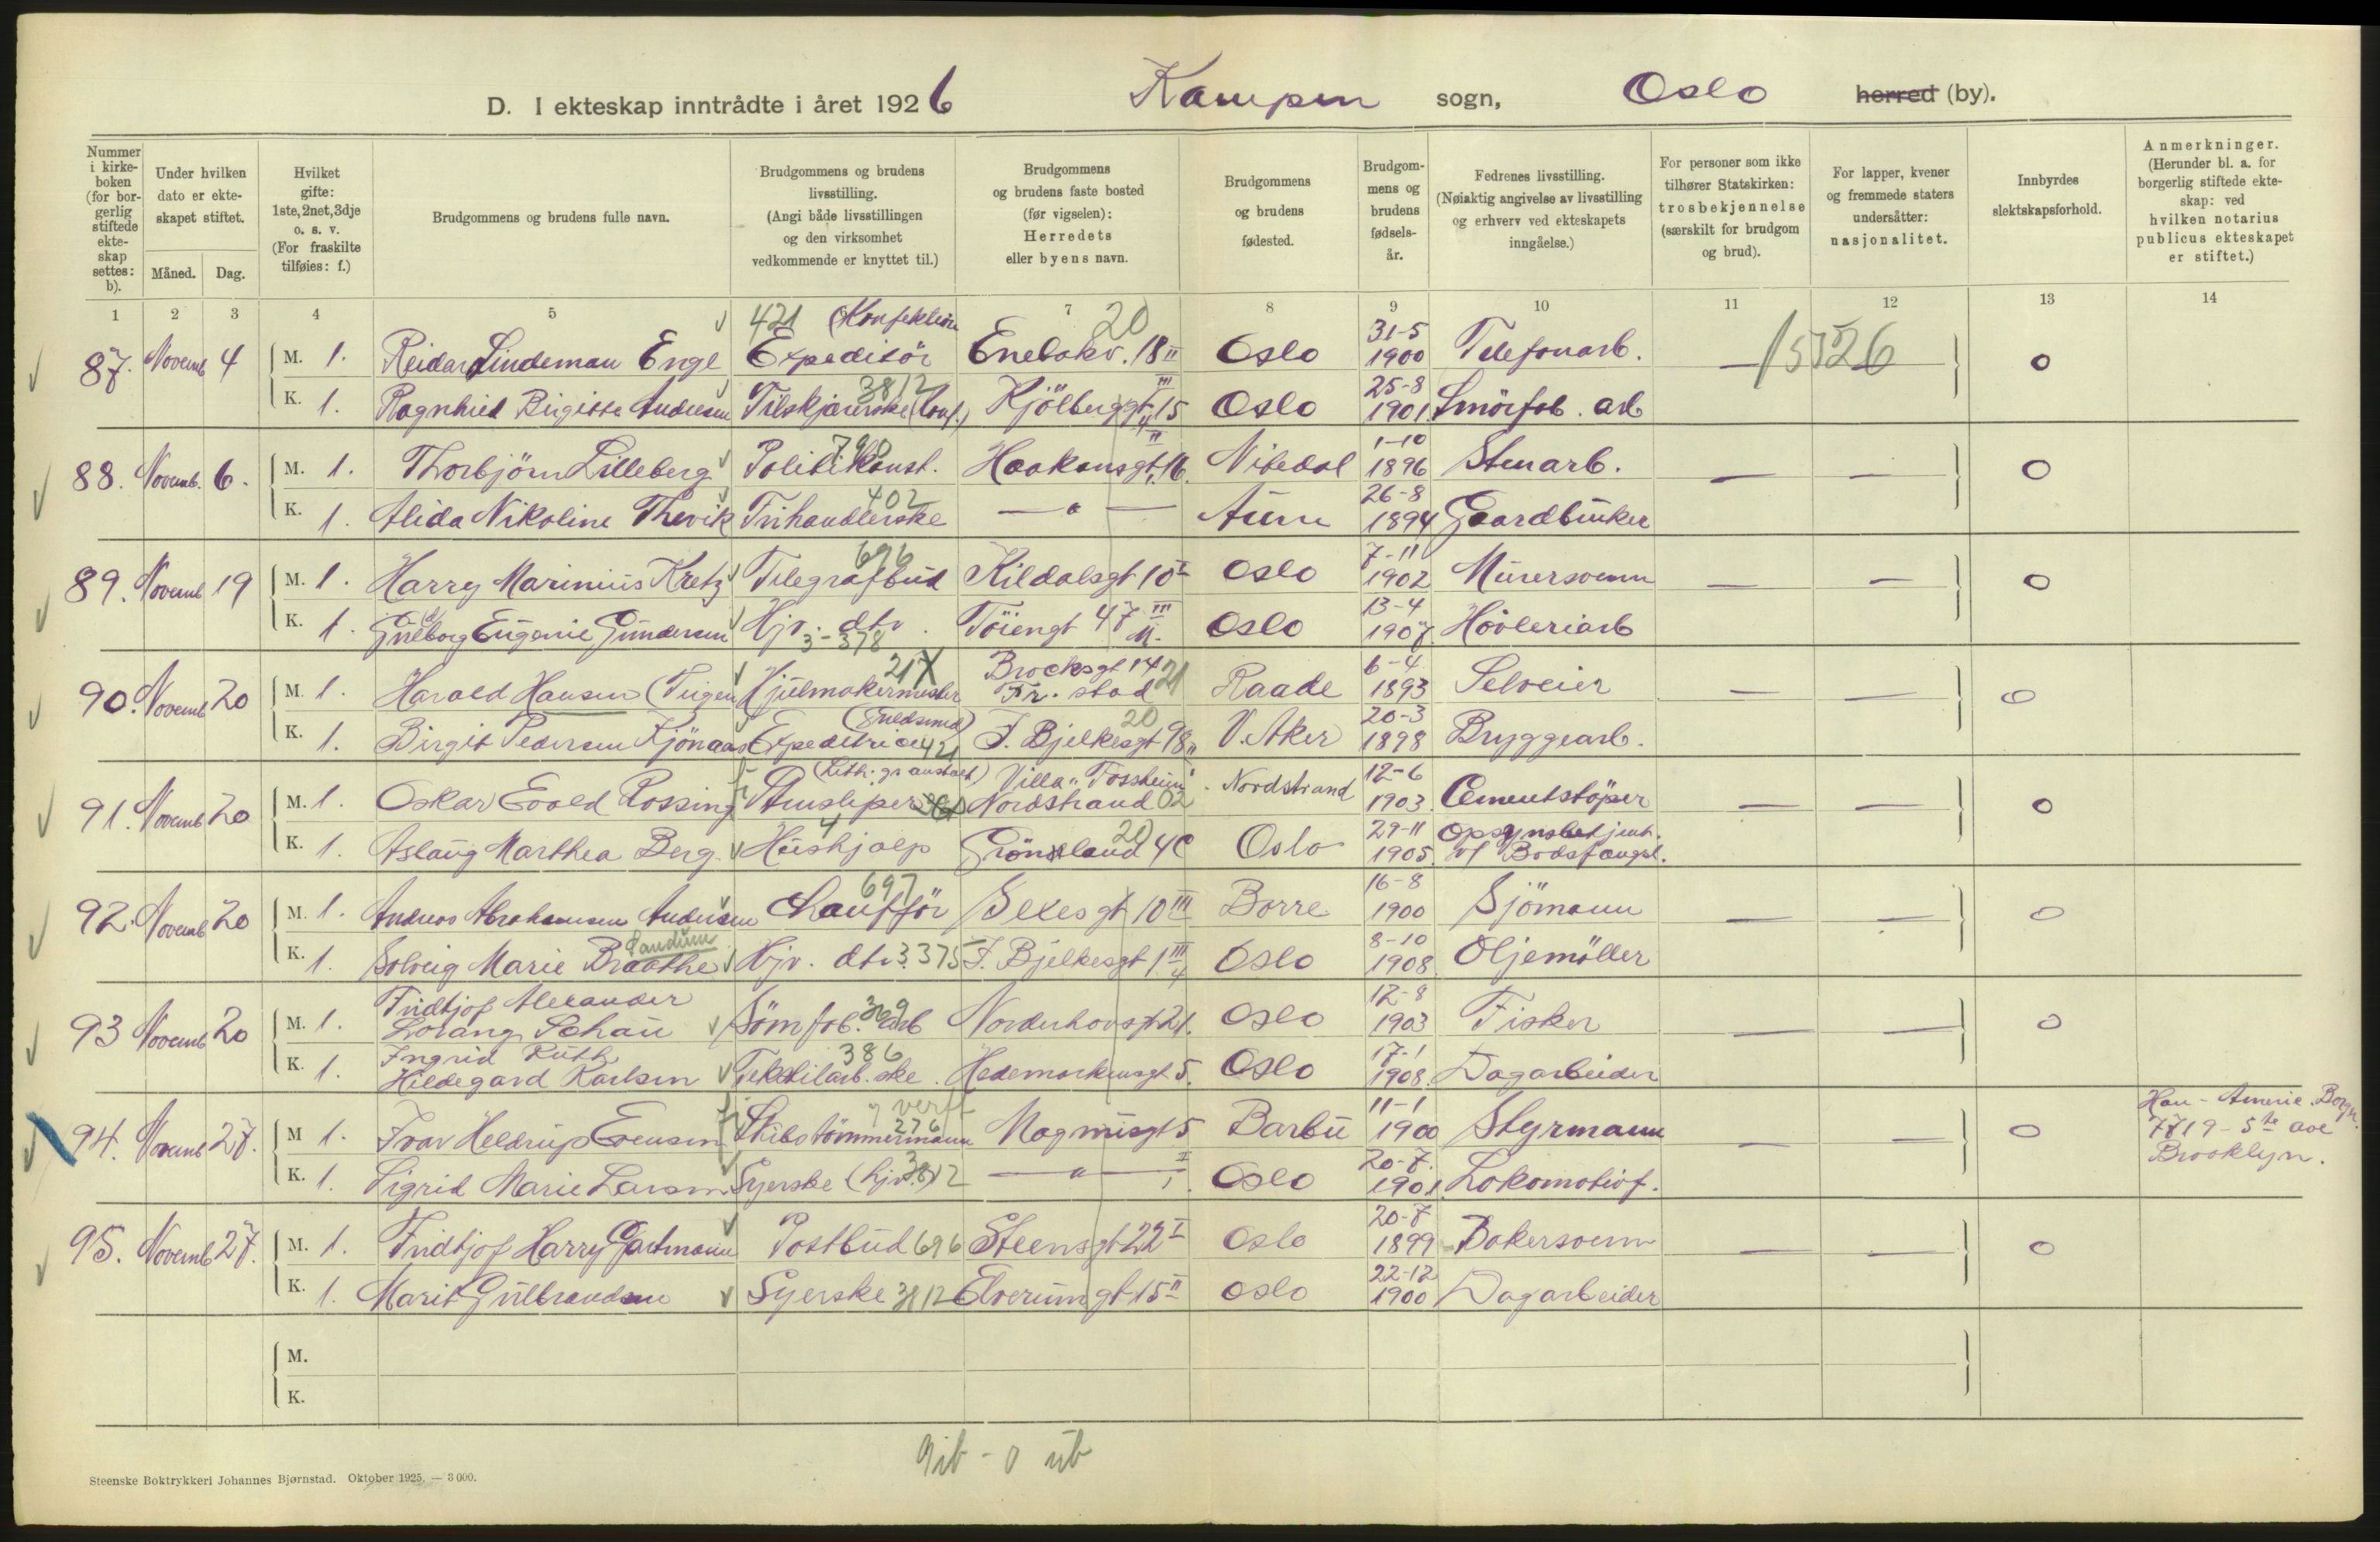 D. I ekteskap inntrådte i året 1926 Kampen sogn, Oslo herred (by).
Nummer i kirke-boken (for bor-gerlig stiftede ekte-skap settes: b).
Under hvilken dato er ekte-skapet stiftet.
Måned. Dag.
Hvilket gifte: 1ste, 2net, 3dje o. s. v. (For fraskilte tilføies: f.)
Brudgommens og brudens fulle navn.
Brudgommens og brudens livsstilling. (Angi både livsstillingen og den virksomhet vedkommende er knyttet til.)
Brudgommens og brudens faste bosted (før vigselen): Herredets eller byens navn.
Brudgommens og brudens fødested.
Brudgom-mens og brudens fødsels-år.
Fedrenes livsstilling. (Nøiaktig angivelse av livsstilling og erhverv ved ekteskapets inngåelse.)
For personer som ikke tilhører Statskirken: trosbekjennelse (særskilt for brudgom og brud).
For lapper, kvener og fremmede staters undersåtter: nasjonalitet.
Innbyrdes slektskapsforhold.
Anmerkninger. (Herunder bl. a. for borgerlig stiftede ekte-skap: ved hvilken notarius publicus ekteskapet er stiftet.)
1 2 3 4 5 7 8 9 10 11 12 13 14
421 (Konfektion 20 31-5
87. Novemb 4 M. 1. Reidar Lindeman Engl Expeditör Enebakv. 18 II Oslo 1900 Telefonarb. — 15526 0
3812 25-8
K. 1. Ragnhild Birgitte Andersen Tilskjærerske (konf.) Kjölberggt. 15 III Oslo 1901 Smörfab. arb
790 1-10
88. Novemb. 6. M. 1. Thorbjörn Lilleberg Politikonst. Haakonsgt. 16 II Nitedal 1896 Stenarb. — — 0
402 26-8
K. 1. Alida Nikoline Thevik Frihandlerske — " — Aure 1894 Gaardbruker
696 7-11
89. Novemb 19 M. 1. Harry Marinius Kretz Telegrafbud Kildalsgt 10 I Oslo 1902 Murersvenn — — 0
13-4
K. 1. Gulborg Eugenie Gundersen Hjv. dtr. 3-378 Töiengt 47 III Oslo 1907 Høvleriarb
217 Brocksgt 14 21 6-4
90. Novemb 20 M. 1. Harald Hansen (Teigen Hjulmakermester Fr. stad Raade 1893 Selveier — — 0
(Guldsmed) 20 20-3
K. 1. Birgit Pedersen Kjönaas Expeditrice 421 J. Bjelkesgt 98 II V. Aker 1898 Bryggearb.
(Lith. gr anstalt) Villa "Fossheim" 12-6
91. Novemb 20 M. 1. Oskar Evald Rossing Stensliper Nordstrand 02 Nordstrand 1903 Cementstöper — — 0
4 20 29-11
K. 1. Aslaug Marthea Berg Hushjælp Grönland 4C Oslo 1905 Opsynsbetjent. v/ Bodsfængsl.
697 16-8
92. Novemb 20 M. 1. Andreas Abrahamsen Andersen Chaufför Sexesgt 10 III Borre 1900 Sjömann — — 0
Sandum 8-10
K. 1. Solveig Marie Braathe Hjv. dtr. 3.375 J. Bjelkesgt 1 III Oslo 1908 Oljemöller
Fridtjof Alexander 369 12-8
93 Novemb 20 M. 1. Lorang Schau Sömfab. arb Norderhovsgt 21. Oslo 1903 Fisker — — 0
Ingrid Ruth 386 17-1
K. 1. Hildegard Karlsen Tekstilarb.ske Hedemarkensgt 5. Oslo 1908. Dagarbeider
verft 11-1 Han - Americ. Borger.
94. Novemb 27. M 1. Ivar Heldrup Evensen Skibstömmermann 276 Magnusgt 5 Barbu 1900 Styrmann — — 0 7719 - 5te ave
20-7. Brooklyn.
K. 1. Sigrid Marie Larsen Syerske (hjv.) 3812 — " — I Oslo 1901. Lokomotivf.
20-7
95. Novemb 27. M. 1. Fridtjof Harry Gartmann Postbud 696 Steensgt 22 I Oslo 1899 Bakersvenn — — 0
22-12
K. 1. Marit Gulbrandsen Syerske 3812 Elverumgt 15 II Oslo 1900 Dagarbeider
M.
K.
9 ib - 0 ub
Steenske Boktrykkeri Johannes Bjørnstad. Oktober 1925. — 3000.